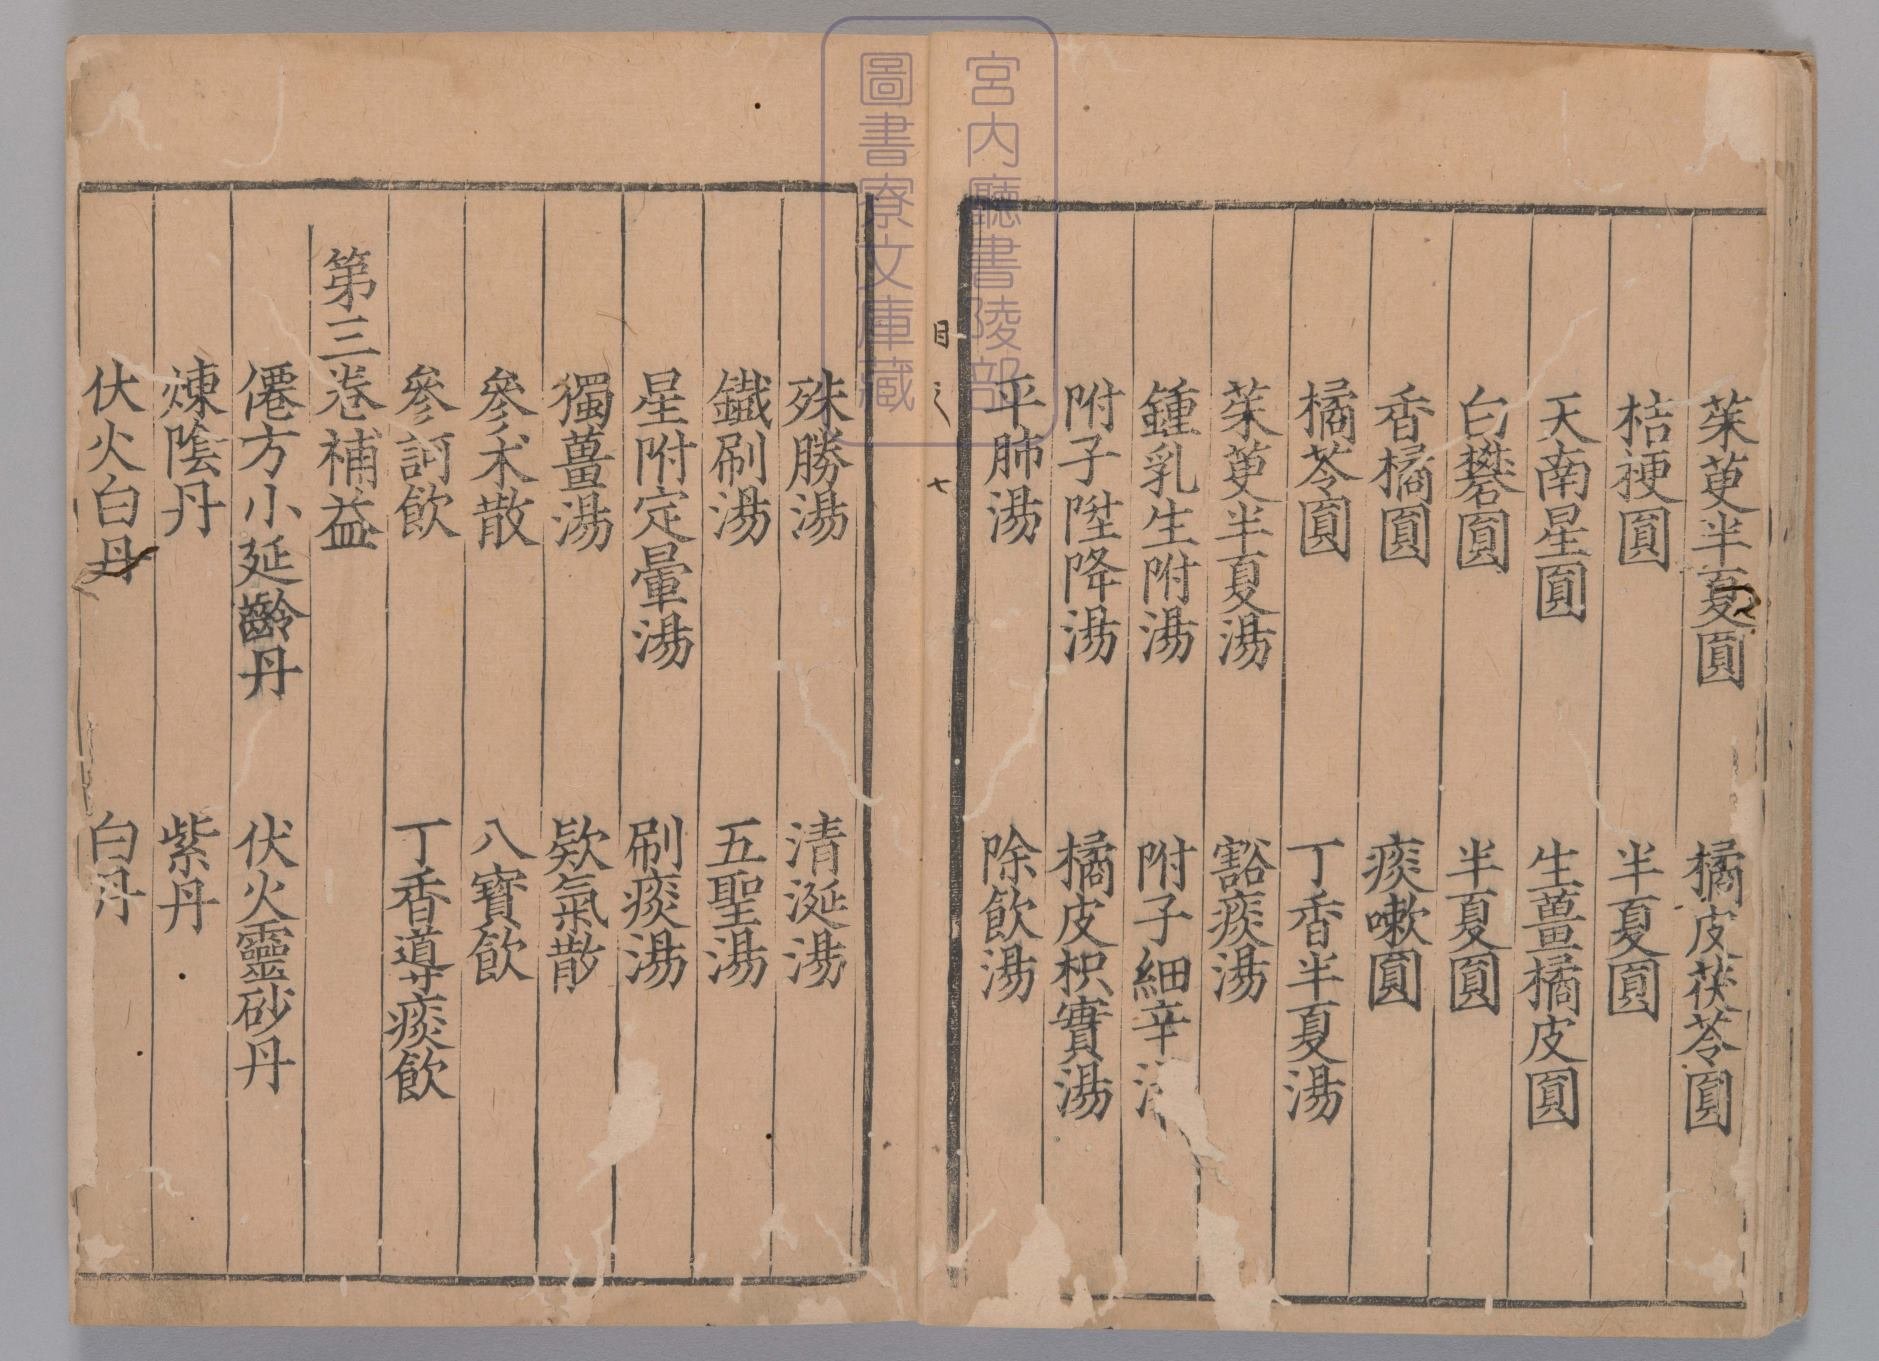 茱萸半夏圓　橘皮茯苓圓
桔梗圓　半夏圓
天南星圓　生薑橘皮圓
白礬圓　半夏圓
香橘圓　痰嗽圓
橘苓圓　丁香半夏湯
茱萸半夏湯　豁痰湯
鍾乳生附湯　附子細辛湯
附子陞降湯　橘皮枳實湯
平肺湯　除飲湯
目　七
殊勝湯　清涎湯
鐵刷湯　五聖湯
星附定暈湯　刷痰湯
獨薑湯　欵氣散
參朮散　八寶飲
參訶飲　丁香導痰飲
第三卷補益
僊方小延齡丹　伏火靈砂丹
煉陰丹　紫丹
伏火白丹　白丹
宮内廳書陵部
圖書寮文庫藏